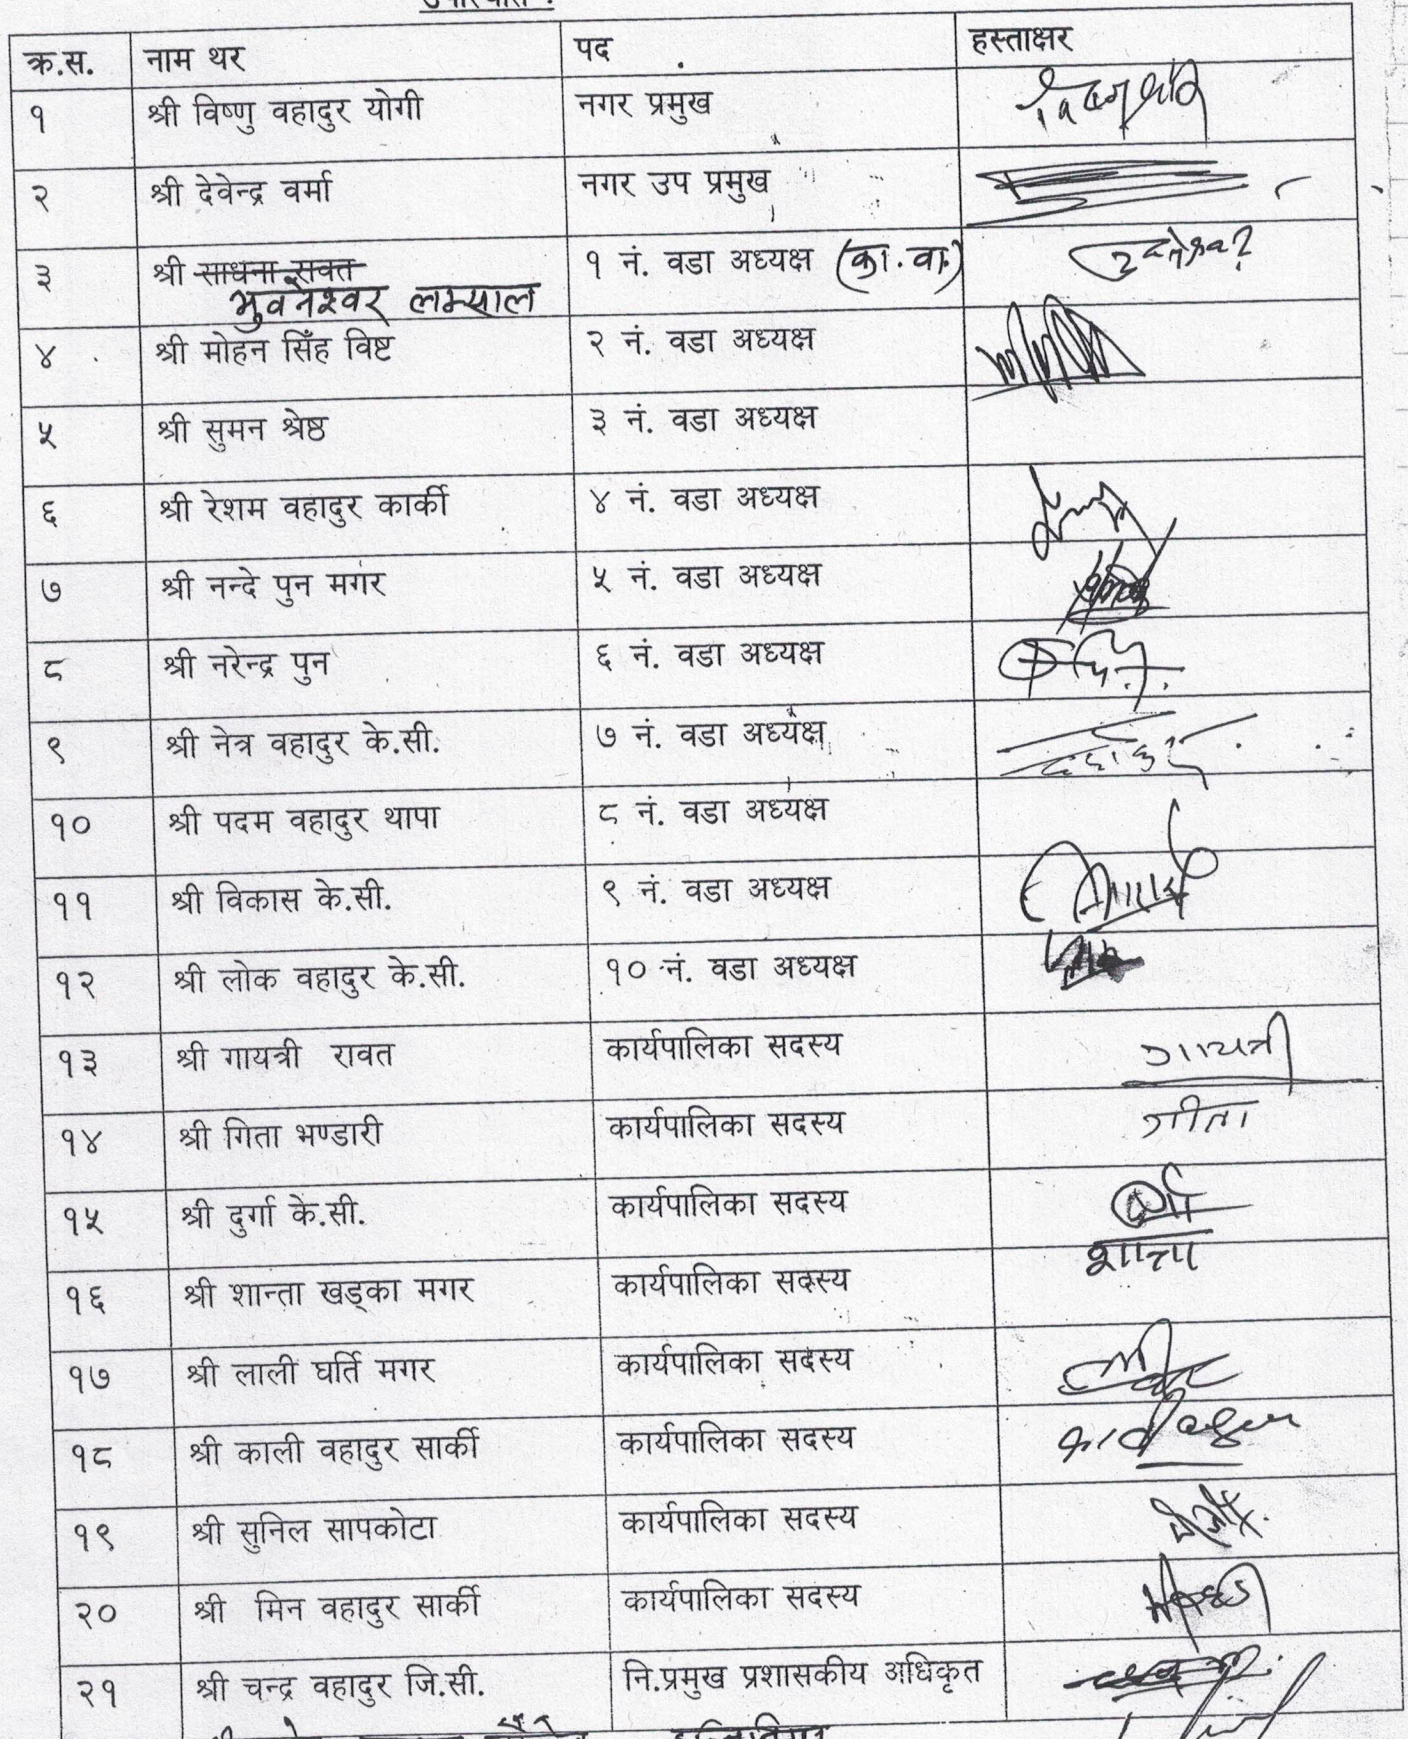 उपस्थिति :
क्र.स. नाम थर पद हस्ताक्षर
१ श्री विष्णु वहादुर योगी नगर प्रमुख
२ श्री देवेन्द्र वर्मा नगर उप प्रमुख
३ श्री साधना रावत १ नं. वडा अध्यक्ष (का.वा.)
भुवनेश्वर लम्साल
४ श्री मोहन सिँह विष्ट २ नं. वडा अध्यक्ष
५ श्री सुमन श्रेष्ठ ३ नं. वडा अध्यक्ष
६ श्री रेशम वहादुर कार्की ४ नं. वडा अध्यक्ष
७ श्री नन्दे पुन मगर ५ नं. वडा अध्यक्ष
८ श्री नरेन्द्र पुन ६ नं. वडा अध्यक्ष
९ श्री नेत्र वहादुर के.सी. ७ नं. वडा अध्यक्ष
१० श्री पदम वहादुर थापा ८ नं. वडा अध्यक्ष
११ श्री विकास के.सी. ९ नं. वडा अध्यक्ष
१२ श्री लोक वहादुर के.सी. १० नं. वडा अध्यक्ष
१३ श्री गायत्री रावत कार्यपालिका सदस्य गायत्री
१४ श्री गिता भण्डारी कार्यपालिका सदस्य गीता
१५ श्री दुर्गा के.सी. कार्यपालिका सदस्य
१६ श्री शान्ता खड्का मगर कार्यपालिका सदस्य शान्ता
१७ श्री लाली घर्ति मगर कार्यपालिका सदस्य
१८ श्री काली वहादुर सार्की कार्यपालिका सदस्य
१९ श्री सुनिल सापकोटा कार्यपालिका सदस्य
२० श्री मिन वहादुर सार्की कार्यपालिका सदस्य
२१ श्री चन्द्र वहादुर जि.सी. नि.प्रमुख प्रशासकीय अधिकृत